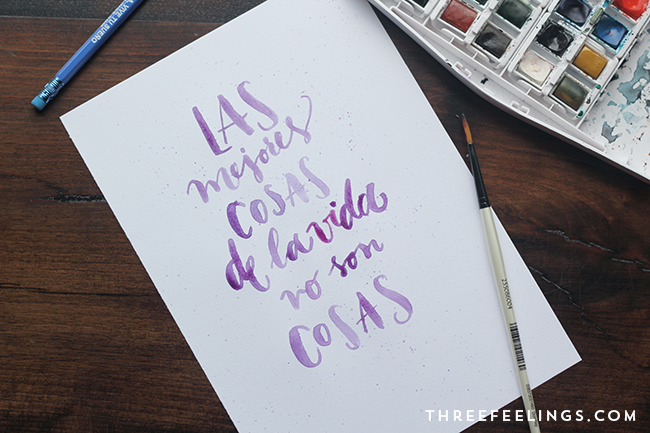 VIVE TU SUEÑO
LAS
mejores
COSAS
de la vida
no son
COSAS
THREEFEELINGS.COM